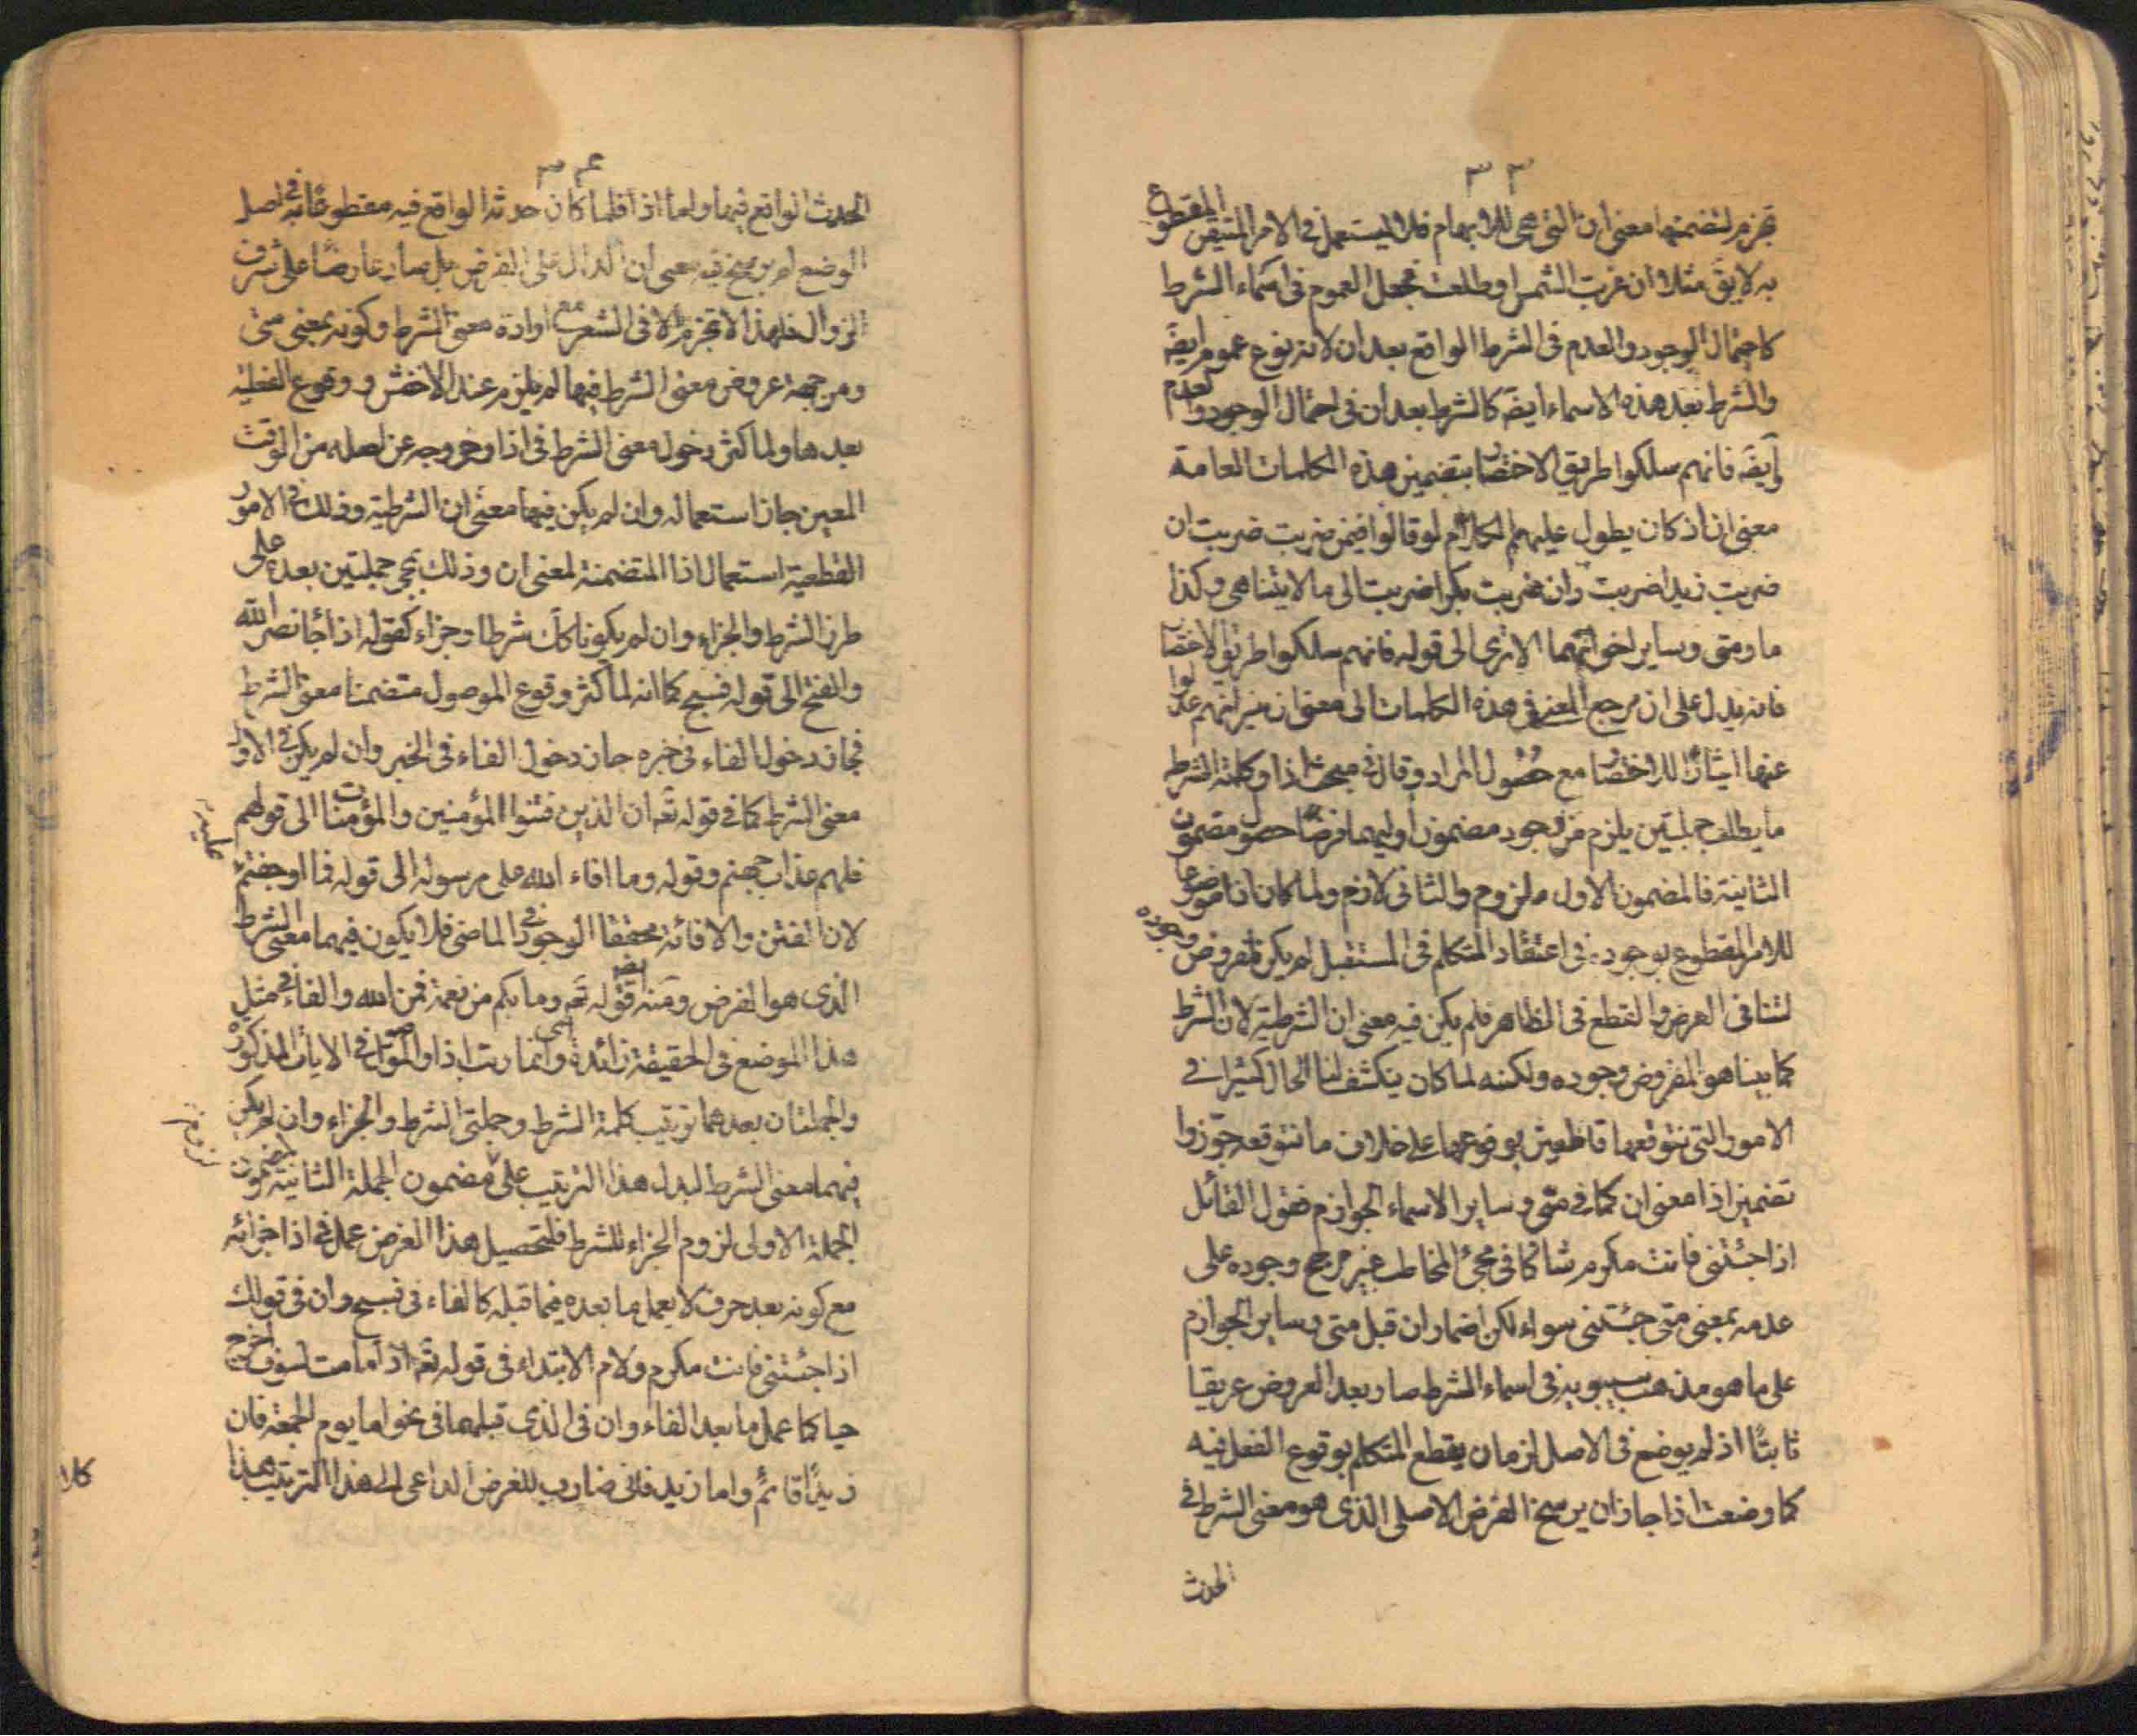 ٣٣
تجزم لتضمنها معنى ان التي هي للابهام فلا يستعمل في الامر المتيقن المقطوع
به لا يقَ مثلا ان غربت الشمس او طلعت فجعل العموم فى اسماء الشرط
كاحتمال الوجود والعدم فى الشرط الواقع بعد ان لانه نوع عموم ايضَ
والشرط بعد هذه الاسماء ايضَ كالشرط بعد ان فى احتمال الوجود والعدم
وايضَ فانهم سلكوا طريق الاختصار بتضمين هذه الكلمات العامة
معنى ان اذ كان يطول عليهم الكلام لو قالوا فيمن ضربت ضربت ان
ضربت زيدا ضربت وان ضربت بكرا ضربت الى ما لا يتناهى وكذا
ما ومتى وساير اخواتهما الا ترى الى قوله فانهم سلكوا طريق الاختصار
فانه يدل على ان مرجع المعنى فى هذه الكلمات الى معنى ان غير انهم عدلوا
عنها ايثارًا للاختصار مع حصول المراد وقال فى مبحث اذا وكلمة الشرط
ما يطلب جملتين يلزم من وجود مضمون اوليهما فرضًا حصول مضمون
الثانية فالمضمون الاول ملزوم والثانى لازم ولما كان اذا موضوعا
للامر المقطوع بوجوده فى اعتقاد المتكلم فى المستقبل لم يكن لمفروض وجوده
لتنافى الفرض والقطع فى الظاهر فلم يكن فيه معنى ان الشرطية لان الشرط
كما بينا هو المفروض وجوده ولكنه لما كان ينكشف لنا الحال كثيرا فى
الامور التى نتوقعها قاطعين بوقوعها على خلاف ما نتوقعه جوّزوا
تضمين اذا معنى ان كما فى متى وساير الاسماء الجوازم فقول القائل
اذا جئتنى فانت مكرم شاكا فى مجئ المخاطب غير مرجح وجوده على
عدمه بمعنى متى جئتنى سواء لكن اضمار ان قبل متى وساير الجوازم
على ما هو مذهب سيبويه فى اسماء الشرط صار بعد العروض عريقا
ثابتًا اذ لم يوضع فى الاصل لزمان يقطع المتكلم بوقوع الفعل فيه
كما وضعت اذا جاز ان يرسخ الفرض الاصلى الذى هو معنى الشرط فى
الحدث
٣٤
الحدث الواقع فيها واما اذا فلما كان حدثه الواقع فيه مقطوعًا به فى اصل
الوضع لم يرسخ فيه معنى ان الدال على الفرض بل صار عارضًا على شرف
الزوال فلهذا لا تجزم الا فى الشعر مع ارادة معنى الشرط وكونه بمعنى متى
ومن جهة عروض معنى الشرط فيها لم يلزم عند الاخفش وقوع الفعلية
بعدها ولما كثر دخول معنى الشرط فى اذا وخروجه عن اصله من الوقت
المعين جاز استعماله وان لم يكن فيها معنى ان الشرطية وذلك فى الامور
القطعية استعمال اذا المتضمنة لمعنى ان وذلك بمجئ جملتين بعده على
طرز الشرط والجزاء وان لم يكونا كك شرطا وجزاء كقوله اذا جاء نصر الله
والفتح الى قوله فسبح كما انه لما كثر وقوع الموصول متضمنا معنى الشرط
فجاز دخول الفاء فى خبره جاز دخول الفاء فى الخبر وان لم يكن فى الاول
معنى الشرط كما فى قوله تعَ ان الذين فتنوا المؤمنين والمؤمنات الى قولهم
فلهم عذاب جهنم وقوله وما افاء الله على رسوله الى قوله فما اوجفتم
عليه
لان الفتن والافائة محققا الوجود فى الماضى فلا يكون فيهما معنى الشرط
الذى هو الفرض ومنه ايضَ قوله تعَ وما بكم من نعمة فمن الله والفاء فى مثل
هذا الموضع فى الحقيقة زائدة وانما رتب اذا والموصول فى الايات المذكورة
والجملتان بعدهما ترتيب كلمة الشرط وجملتى الشرط والجزاء وان لم يكن
فيهما معنى الشرط ليدل هذا الترتيب على مضمون الجملة الثانية لمضمون
لزوم
الجملة الاولى لزوم الجزاء للشرط فلتحصيل هذا الغرض عمل فى اذا جزائه
مع كونه بعد حرف لا يعمل ما بعده فيما قبله كالفاء فى فسبح وان فى قولك
اذا جئتنى فانت مكرم ولام الابتداء فى قوله تعَ اذا ما مت لسوف اخرج
حيا كما عمل ما بعد الفاء وان فى الذى قبلهما فى نحو اما يوم الجمعة فان
زيدًا قائم واما زيد فانى ضارب للغرض الداعى الى هذا الترتيب هذا
كلا